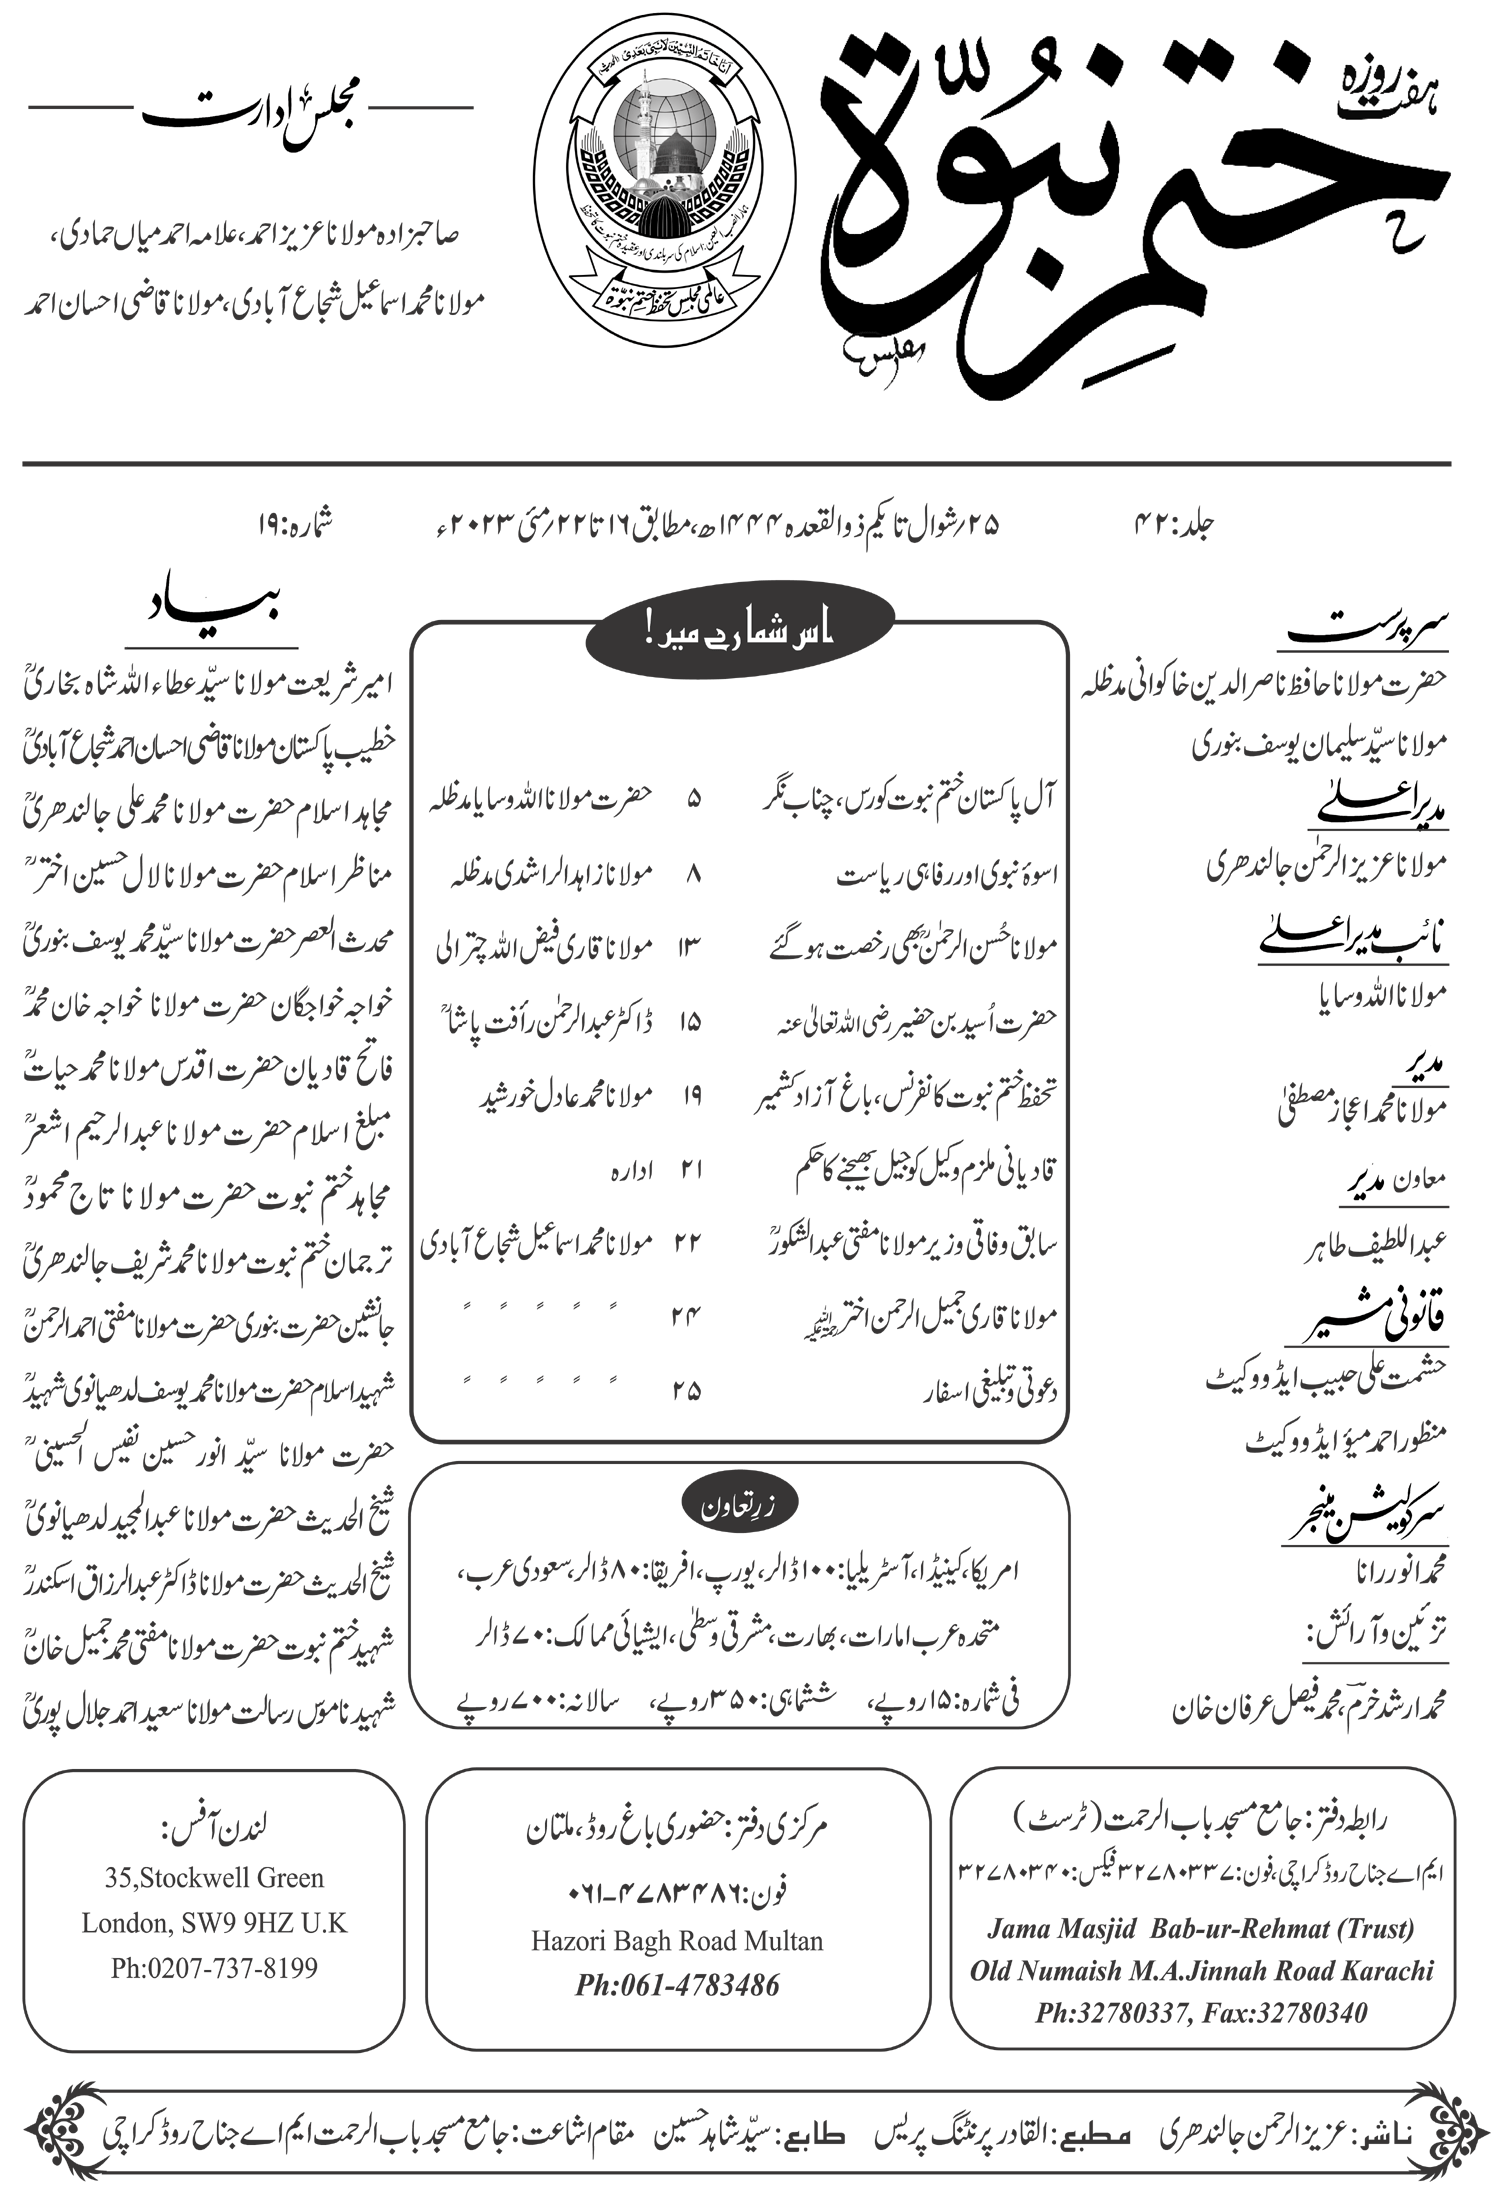 ہفت روزہ
ختم نبوّۃ
انا خاتم النبیین لا نبی بعدی
عالمی مجلس تحفظ ختم نبوّۃ
مجلس ادارت
صاحبزادہ مولانا عزیز احمد، علامہ احمد میاں حمادی،
مولانا محمد اسماعیل شجاع آبادی، مولانا قاضی احسان احمد
جلد: ۴۲
۲۵؍شوال تا یکم ذوالقعدہ ۱۴۴۴ھ، مطابق ۱۶ تا ۲۲؍مئی ۲۰۲۳ء
شمارہ: ۱۹
سرپرست
حضرت مولانا حافظ ناصر الدین خاکوانی مدظلہ
مولانا سیّد سلیمان یوسف بنوری
مدیر اعلیٰ
مولانا عزیز الرحمٰن جالندھری
نائب مدیر اعلیٰ
مولانا اللہ وسایا
مدیر
مولانا محمد اعجاز مصطفیٰ
معاون مدیر
عبداللطیف طاہر
قانونی مشیر
حشمت علی حبیب ایڈووکیٹ
منظور احمد میؤ ایڈووکیٹ
سرکولیشن مینجر
محمد انور رانا
تزئین و آرائش:
محمد ارشد خرم، محمد فیصل عرفان خان
اس شمارے میں!
آل پاکستان ختم نبوت کورس، چناب نگر ۵ حضرت مولانا اللہ وسایا مدظلہ
اسوۂ نبوی اور رفاہی ریاست ۸ مولانا زاہد الراشدی مدظلہ
مولانا حُسن الرحمٰنؒ بھی رخصت ہوگئے ۱۳ مولانا قاری فیض اللہ چترالی
حضرت اُسید بن حضیر رضی اللہ تعالیٰ عنہ ۱۵ ڈاکٹر عبدالرحمٰن رأفت پاشاؒ
تحفظ ختم نبوت کانفرنس، باغ آزاد کشمیر ۱۹ مولانا محمد عادل خورشید
قادیانی ملزم وکیل کو جیل بھیجنے کا حکم ۲۱ ادارہ
سابق وفاقی وزیر مولانا مفتی عبدالشکورؒ ۲۲ مولانا محمد اسماعیل شجاع آبادی
مولانا قاری جمیل الرحمن اختر رحمۃ اللہ علیہ ۲۴ ״ ״ ״ ״ ״
دعوتی و تبلیغی اسفار ۲۵ ״ ״ ״ ״ ״
زرِتعاون
امریکا، کینیڈا، آسٹریلیا: ۱۰۰ ڈالر، یورپ، افریقا: ۸۰ ڈالر، سعودی عرب،
متحدہ عرب امارات، بھارت، مشرقی وسطیٰ، ایشیائی ممالک: ۷۰ ڈالر
فی شمارہ: ۱۵ روپے، ششماہی: ۳۵۰ روپے، سالانہ: ۷۰۰ روپے
بیاد
امیر شریعت مولانا سیّد عطاء اللہ شاہ بخاریؒ
خطیب پاکستان مولانا قاضی احسان احمد شجاع آبادیؒ
مجاہد اسلام حضرت مولانا محمد علی جالندھریؒ
مناظر اسلام حضرت مولانا لال حسین اخترؒ
محدث العصر حضرت مولانا سیّد محمد یوسف بنوریؒ
خواجہ خواجگان حضرت مولانا خواجہ خان محمدؒ
فاتح قادیان حضرت اقدس مولانا محمد حیاتؒ
مبلغ اسلام حضرت مولانا عبدالرحیم اشعرؒ
مجاہد ختم نبوت حضرت مولانا تاج محمودؒ
ترجمان ختم نبوت مولانا محمد شریف جالندھریؒ
جانشین حضرت بنوری حضرت مولانا مفتی احمد الرحمنؒ
شہید اسلام حضرت مولانا محمد یوسف لدھیانوی شہیدؒ
حضرت مولانا سیّد انور حسین نفیس الحسینیؒ
شیخ الحدیث حضرت مولانا عبدالمجید لدھیانویؒ
شیخ الحدیث حضرت مولانا ڈاکٹر عبدالرزاق اسکندرؒ
شہید ختم نبوت حضرت مولانا مفتی محمد جمیل خانؒ
شہید ناموس رسالت مولانا سعید احمد جلال پوریؒ
رابطہ دفتر: جامع مسجد باب الرحمت (ٹرسٹ)
ایم اے جناح روڈ کراچی، فون: ۳۲۷۸۰۳۳۷ فیکس: ۳۲۷۸۰۳۴۰
Jama Masjid Bab-ur-Rehmat (Trust)
Old Numaish M.A.Jinnah Road Karachi
Ph:32780337, Fax:32780340
مرکزی دفتر: حضوری باغ روڈ، ملتان
فون: ۰۶۱-۴۷۸۳۴۸۶
Hazori Bagh Road Multan
Ph:061-4783486
لندن آفس:
35,Stockwell Green
London, SW9 9HZ U.K
Ph:0207-737-8199
ناشر: عزیز الرحمن جالندھری مطبع: القادر پرنٹنگ پریس طابع: سیّد شاہد حسین مقام اشاعت: جامع مسجد باب الرحمت ایم اے جناح روڈ کراچی